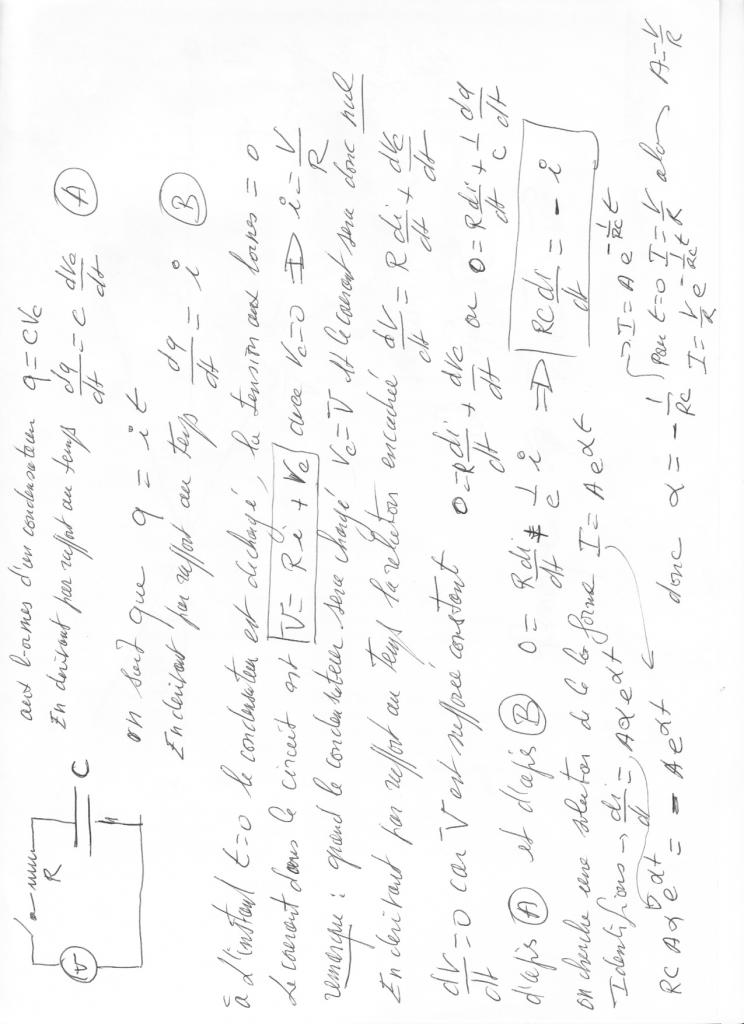 aux bornes d'un condensateur q = CVc
En dérivant par rapport au temps dq/dt = C dVc/dt (A)
V R C
on sait que q = i t
En dérivant par rapport au temps dq/dt = i (B)
à l'instant t=0 le condensateur est déchargé, la tension aux bornes = 0
Le courant dans le circuit est V = Ri + Vc avec Vc=0 ⇒ i = V/R
remarque : quand le condensateur sera chargé Vc = V et le courant sera donc nul
En dérivant par rapport au temps la relation encadrée dV/dt = R di/dt + dVc/dt
dV/dt = 0 car V est supposée constant 0 = R di/dt + dVc/dt ou 0 = R di/dt + 1/C dq/dt
d'après (A) et d'après (B) 0 = R di/dt + 1/C i ⇒ RC di/dt = - i
on cherche une solution de la forme I = A e^αt → I = A e^-1/RC t
Identifions → di/dt = Aα e^αt
RC Aα e^αt = - A e^αt donc α = - 1/RC pour t=0 I = V/R alors A = V/R
I = V/R e^-1/RC t